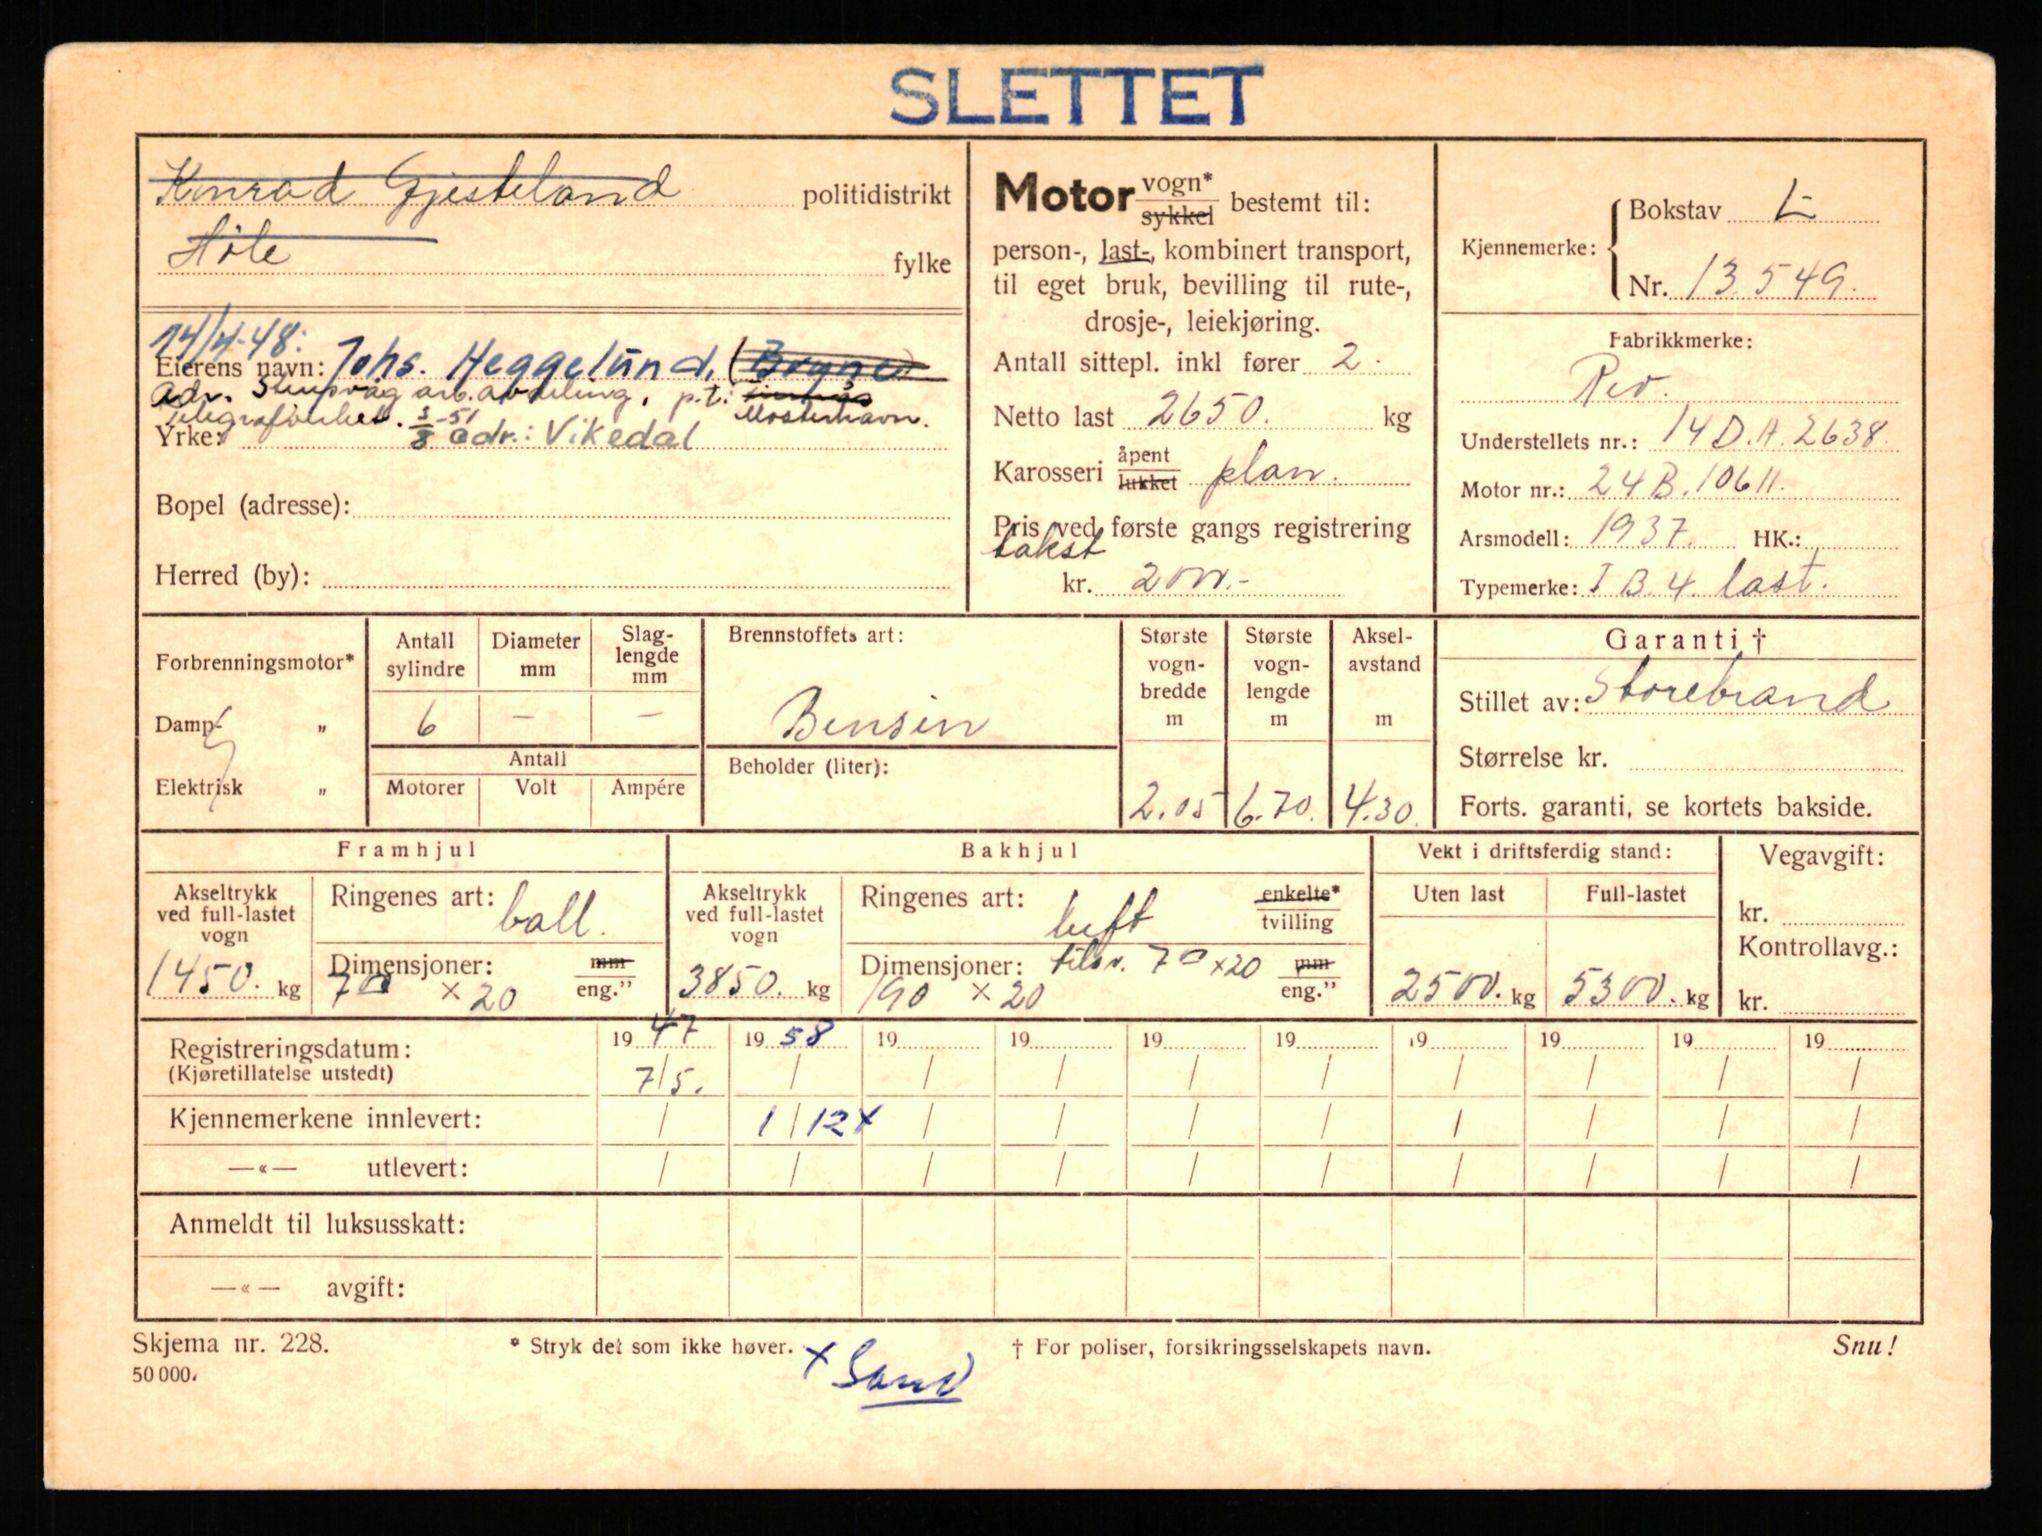 SLETTET
Konrad Gjesteland politidistrikt
Høle fylke
14/4-48:
Eierens navn: Johs. Heggelund, (Bogne)
Adr. Slempvåg arb.avdeling, p.t.
Telegrafverket. 3/8-51 Mosterhavn.
Yrke: adr.: Vikedal
Bopel (adresse):
Herred (by):
Motor vogn* sykkel bestemt til:
person-, last-, kombinert transport,
til eget bruk, bevilling til rute-,
drosje-, leiekjøring.
Antall sittepl. inkl fører 2.
Netto last 2650. kg
Karosseri åpent lukket plan.
Pris ved første gangs registrering
takst
kr. 200.-
Kjennemerke: Bokstav L
Nr. 13.549.
Fabrikkmerke:
Reo.
Understellets nr.: 14 D.A. 2638.
Motor nr.: 24 B. 10611.
Arsmodell: 1937. HK.:
Typemerke: I B. 4. last.
Forbrenningsmotor*
Damp- „
Elektrisk „
Antall sylindre Diameter mm Slag-lengde mm
6 — —
Antall
Motorer Volt Ampére
Brennstoffets art:
Bensin
Beholder (liter):
Største vogn-bredde m Største vogn-lengde m Aksel-avstand m
2.05 6.70. 4.30.
Garanti †
Stillet av: Storebrand
Størrelse kr.
Forts. garanti, se kortets bakside.
Framhjul
Akseltrykk ved full-lastet vogn
1450. kg
Ringenes art: ball.
Dimensjoner: mm eng."
700 × 20
Bakhjul
Akseltrykk ved full-lastet vogn
3850. kg
Ringenes art: luft enkelte* tvilling
Dimensjoner: tilsv. 700 × 20 mm eng."
190 × 20
Vekt i driftsferdig stand:
Uten last Full-lastet
2500. kg 5300. kg
Vegavgift:
kr.
Kontrollavg.:
kr.
Registreringsdatum: 1947 1958 19 19 19 19 19 19 19 19
(Kjøretillatelse utstedt) 7/5. / / / / / / / / /
Kjennemerkene innlevert: / 1/12 x / / / / / / / /
—«— utlevert: / / / / / / / / / /
Anmeldt til luksusskatt:
—«— avgift:
Skjema nr. 228. * Stryk det som ikke høver. † For poliser, forsikringsselskapets navn. Snu!
50 000.
x Sand